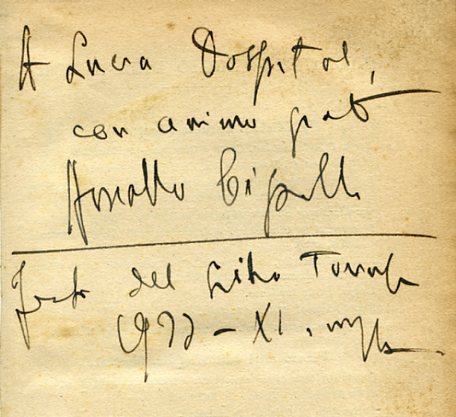 A Lucia Dospital,
con animo grato
Arnaldo Cipolla
Festa del Libro Torino
1933 - XI,